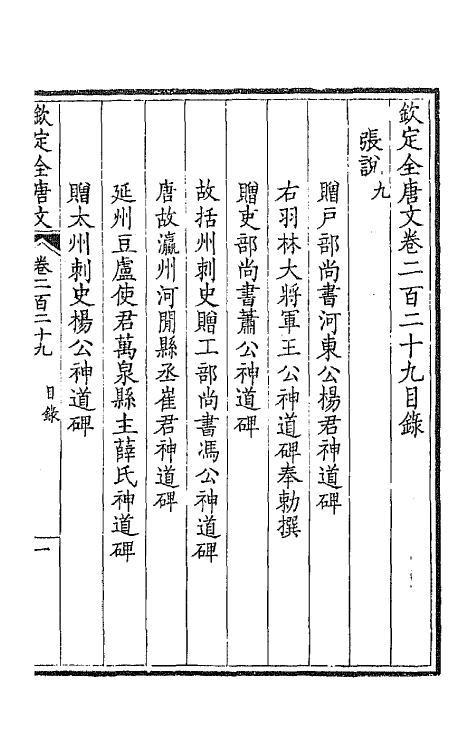 欽定全唐文卷二百二十九目錄
張說九
贈戶部尚書河東公楊君神道碑
右羽林大將軍王公神道碑奉勅撰
贈吏部尚書蕭公神道碑
故括州刺史贈工部尚書馮公神道碑
唐故瀛州河閒縣丞崔君神道碑
延州豆盧使君萬泉縣主薛氏神道碑
贈太州刺史楊公神道碑
欽定全唐文 卷二百二十九 目錄 一